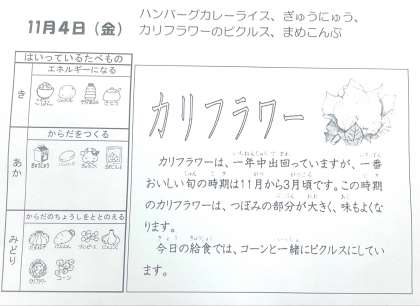 11月4日（金）
ハンバーグカレーライス、ぎゅうにゅう、
カリフラワーのピクルス、まめこんぶ
はいっているたべもの
き
エネルギーになる
ごはん
さとう
あか
からだをつくる
ぎゅうにゅう
みどり
からだのちょうしをととのえる
カリフラワー
コーン
カリフラワー
カリフラワーは、一年中出回っていますが、一番
おいしい旬の時期は11月から3月頃です。この時期
のカリフラワーは、つぼみの部分が大きく、味もよくな
ります。
今日の給食では、コーンと一緒にピクルスにしてい
ます。